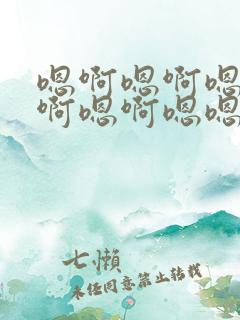 嗯啊嗯啊嗯
啊嗯啊嗯嗯
七懒
未经同意禁止转载